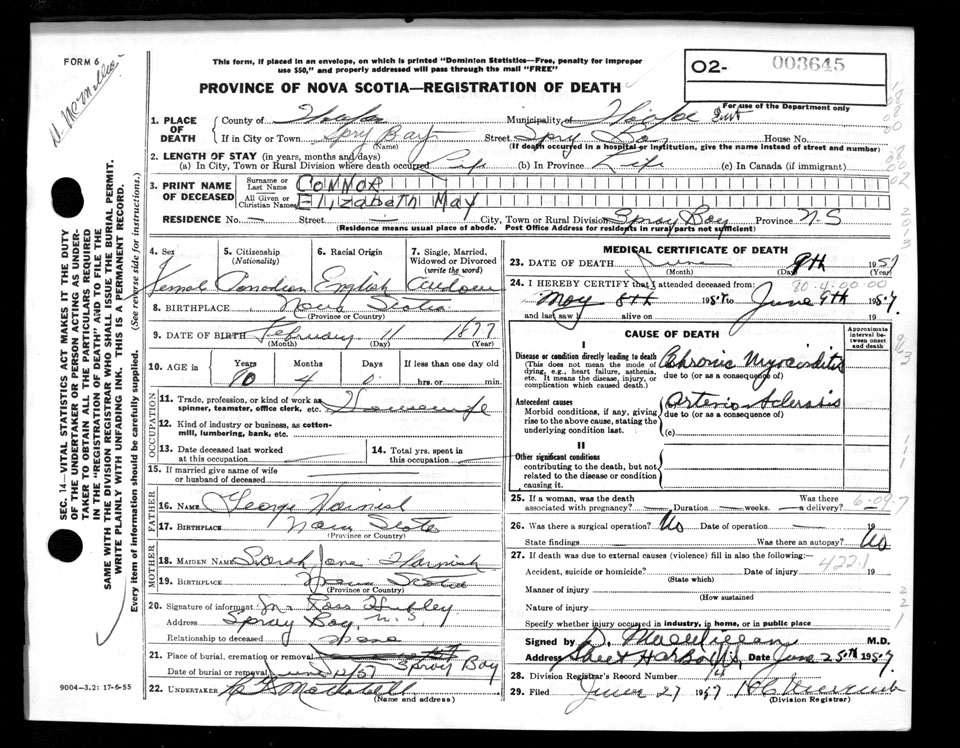 FORM 6
This form, if placed in an envelope, on which is printed "Dominion Statistics—Free, penalty for improper
use $50," and properly addressed will pass through the mail "FREE"
O2- 003645
For use of the Department only
PROVINCE OF NOVA SCOTIA—REGISTRATION OF DEATH
1. PLACE OF DEATH
County of Halifax Municipality of Halifax
If in City or Town Spry Bay Street Spry Bay House No.
(Name) (If death occurred in a hospital or institution, give the name instead of street and number)
2. LENGTH OF STAY (in years, months and days)
(a) In City, Town or Rural Division where death occurred Life (b) In Province Life (c) In Canada (if immigrant)
3. PRINT NAME OF DECEASED
Surname or Last Name CONNOR
All Given or Christian Names ELIZABETH MAY
RESIDENCE No. — Street City, Town or Rural Division Spray Bay Province N.S
(Residence means usual place of abode. Post Office Address for residents in rural parts not sufficient)
4. Sex 5. Citizenship (Nationality) 6. Racial Origin 7. Single, Married, Widowed or Divorced (write the word)
Female Canadian English Widow
8. BIRTHPLACE Nova Scotia
(Province or Country)
9. DATE OF BIRTH February 11 1877
(Month) (Day) (Year)
10. AGE in Years Months Days If less than one day old
80 4 hrs. or min.
OCCUPATION
11. Trade, profession, or kind of work as spinner, teamster, office clerk, etc. Housewife
12. Kind of industry or business, as cotton-mill, lumbering, bank, etc.
13. Date deceased last worked at this occupation
14. Total yrs. spent in this occupation
15. If married give name of wife or husband of deceased
FATHER
16. NAME George Harnish
17. BIRTHPLACE Nova Scotia
(Province or Country)
MOTHER
18. MAIDEN NAME Sarah Jane Harnish
19. BIRTHPLACE Nova Scotia
(Province or Country)
20. Signature of informant Ross
Address Spray Bay N.S.
Relationship to deceased
21. Place of burial, cremation or removal Spray Bay
Date of burial or removal June /57
22. UNDERTAKER
(Name and address)
9004—3.2: 17-6-55
MEDICAL CERTIFICATE OF DEATH
23. DATE OF DEATH June 9th 1957
(Month) (Day) (Year)
24. I HEREBY CERTIFY that I attended deceased from:
May 8th 1957 to June 9th 1957
and last saw h alive on 19
CAUSE OF DEATH
Approximate interval between onset and death
I
Disease or condition directly leading to death
(This does not mean the mode of dying, e.g., heart failure, asthenia, etc. It means the disease, injury, or complication which caused death.)
(a) Chronic Myocarditis
due to (or as a consequence of)
Antecedent causes
Morbid conditions, if any, giving rise to the above cause, stating the underlying condition last.
Arterio Sclerosis
due to (or as a consequence of)
(c)
II
Other significant conditions
contributing to the death, but not related to the disease or condition causing it.
25. If a woman, was the death associated with pregnancy? Duration weeks. Was there a delivery?
26. Was there a surgical operation? No Date of operation 19
State findings Was there an autopsy? No
27. If death was due to external causes (violence) fill in also the following:—
Accident, suicide or homicide? Date of injury 19
(State which)
422.1
Manner of injury
(How sustained
Nature of injury
Specify whether injury occurred in industry, in home, or in public place
Signed by M.D.
Address Sheet Harbour Date June 25th 1957
28. Division Registrar's Record Number
29. Filed June 27 1957
(Division Registrar)
SEC. 14—VITAL STATISTICS ACT MAKES IT THE DUTY
OF THE UNDERTAKER OR PERSON ACTING AS UNDER-
TAKER TO OBTAIN ALL THE PARTICULARS REQUIRED
IN THE "REGISTRATION OF DEATH" AND TO FILE THE
SAME WITH THE DIVISION REGISTRAR WHO SHALL ISSUE THE BURIAL PERMIT.
WRITE PLAINLY WITH UNFADING INK. THIS IS A PERMANENT RECORD.
Every item of information should be carefully supplied. (See reverse side for instructions.)